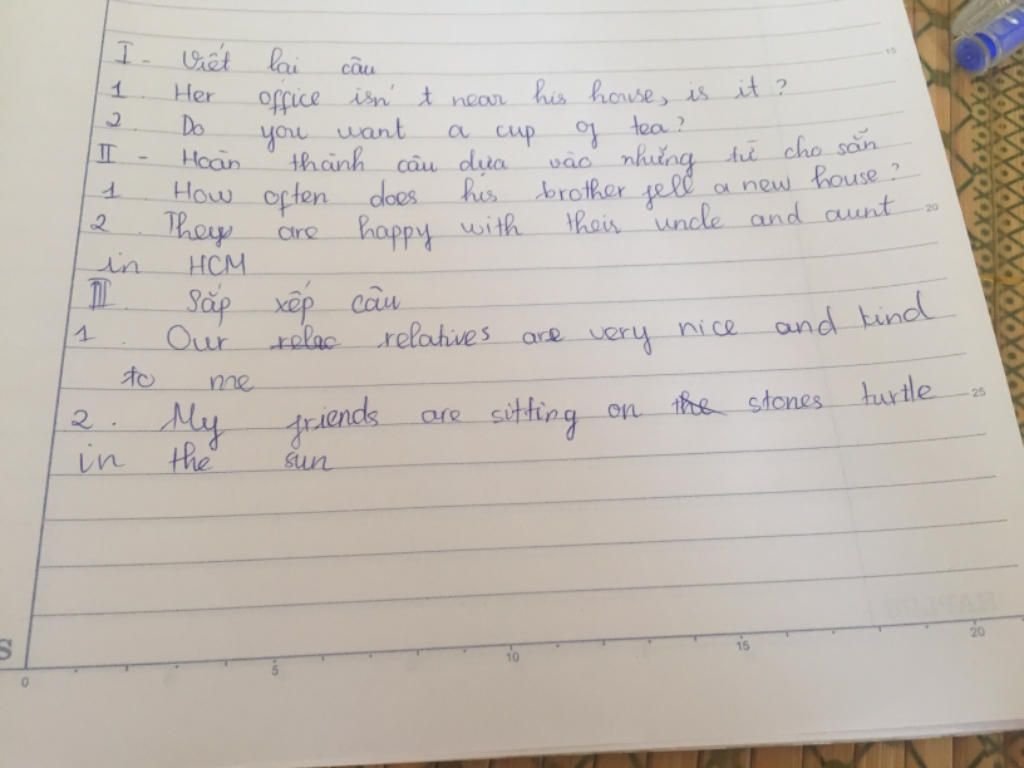 I - Viết lại câu
1. Her office isn't near his house, is it?
2. Do you want a cup of tea?
II - Hoàn thành câu dựa vào những từ cho sẵn
1 How often does his brother sell a new house?
2. They are happy with their uncle and aunt
in HCM
III. Sắp xếp câu
1. Our relac relatives are very nice and kind
to me
2. My friends are sitting on the stones turtle
in the sun
15
20
25
S
0 5 10 15 20